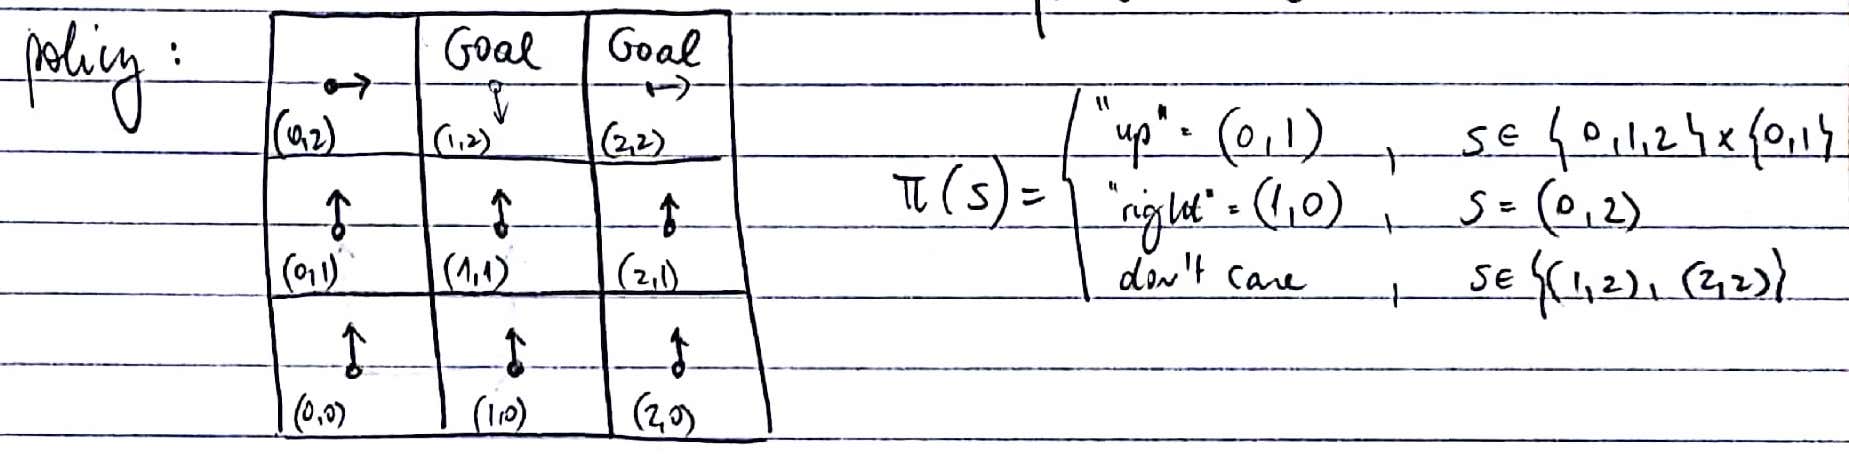 policy :
Goal Goal
(0,2) (1,2) (2,2)
(0,1) (1,1) (2,1)
(0,0) (1,0) (2,0)
π(s) =
"up" = (0,1) , s ∈ {0,1,2} × {0,1}
"right" = (1,0) , s = (0,2)
don't care , s ∈ {(1,2), (2,2)}